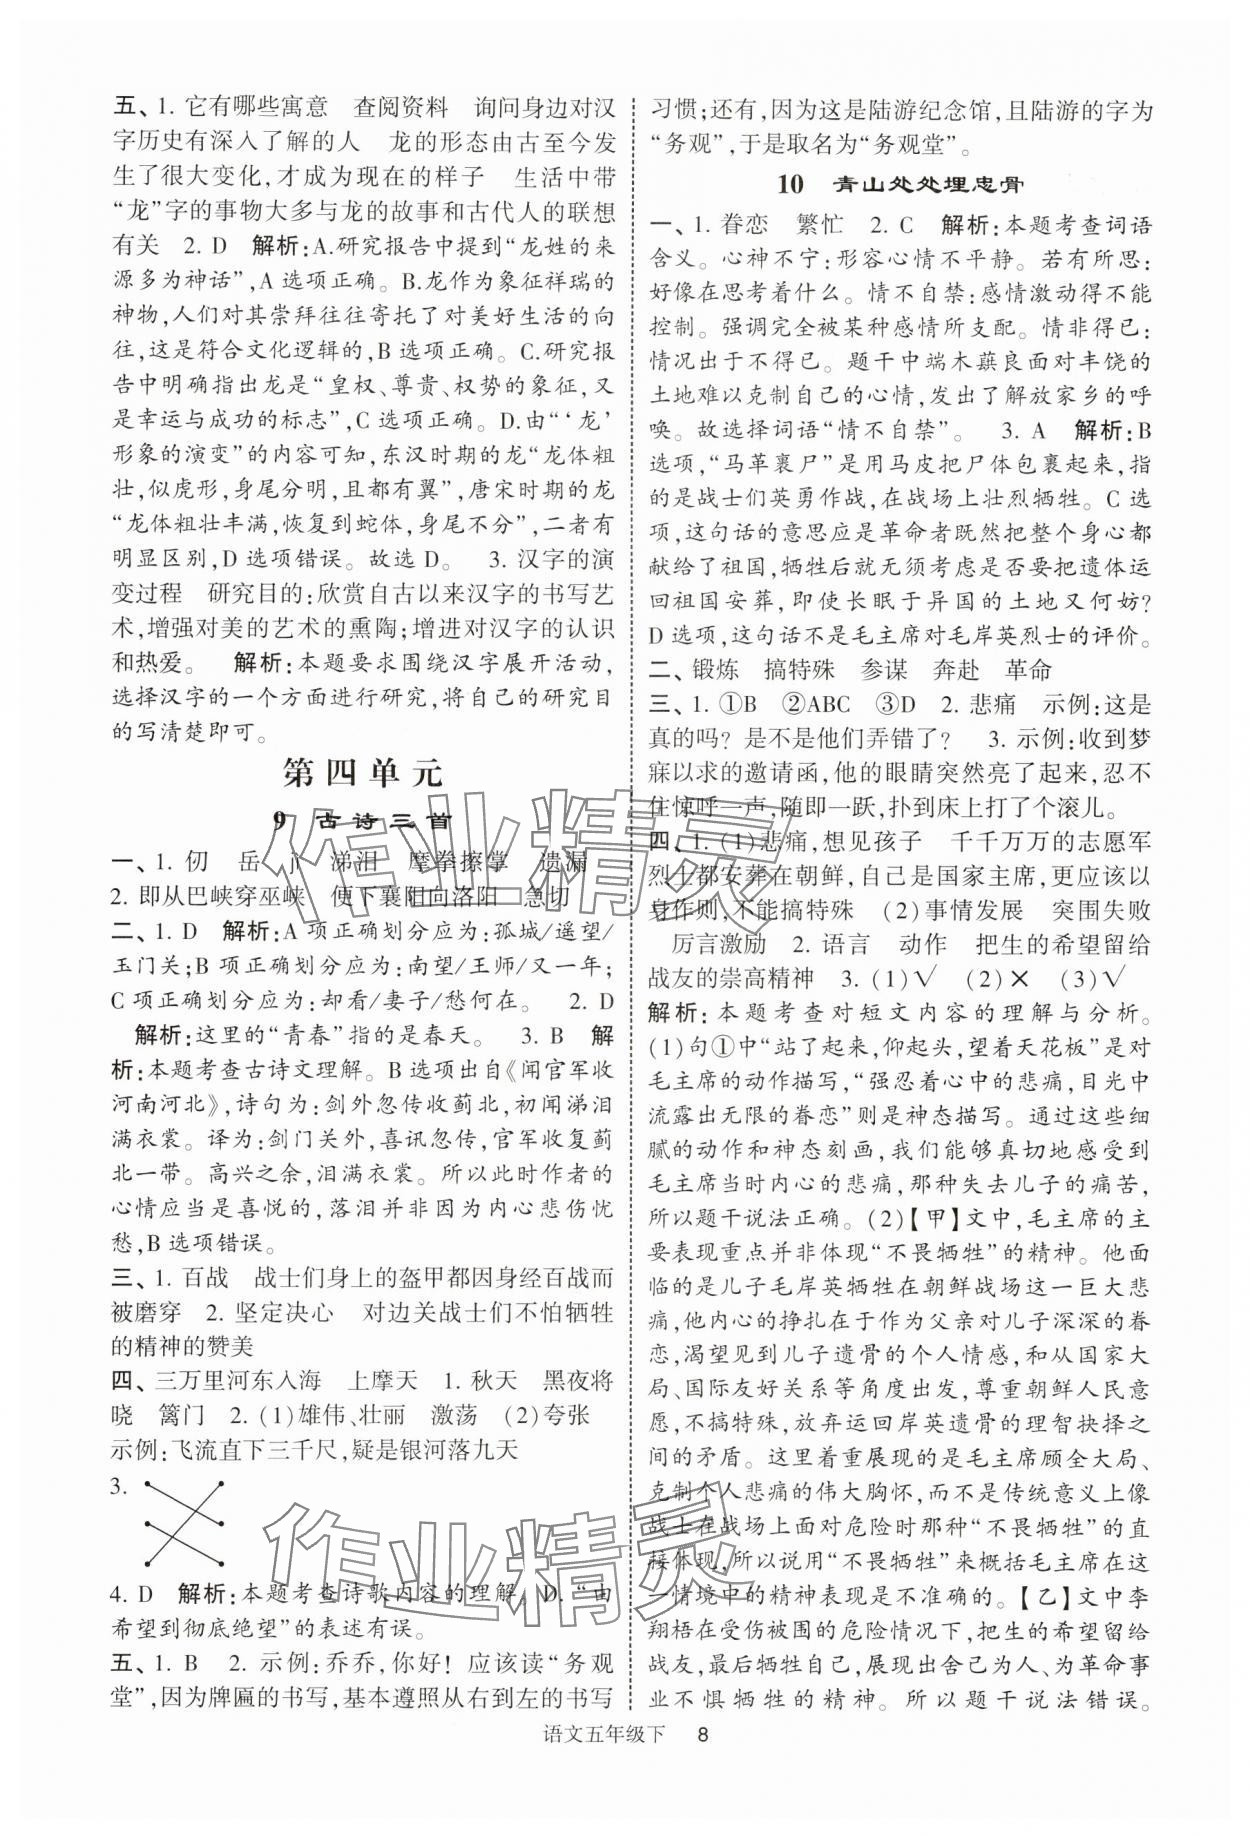 五、1. 它有哪些寓意　查阅资料　询问身边对汉
字历史有深入了解的人　龙的形态由古至今发
生了很大变化,才成为现在的样子　生活中带
“龙”字的事物大多与龙的故事和古代人的联想
有关　2. D　解析:A.研究报告中提到“龙姓的来
源多为神话”,A 选项正确。B.龙作为象征祥瑞的
神物,人们对其崇拜往往寄托了对美好生活的向
往,这是符合文化逻辑的,B 选项正确。C.研究报
告中明确指出龙是“皇权、尊贵、权势的象征,又
是幸运与成功的标志”,C 选项正确。D.由“‘龙’
形象的演变”的内容可知,东汉时期的龙“龙体粗
壮,似虎形,身尾分明,且都有翼”,唐宋时期的龙
“龙体粗壮丰满,恢复到蛇体,身尾不分”,二者有
明显区别,D 选项错误。故选 D。　3. 汉字的演
变过程　研究目的:欣赏自古以来汉字的书写艺
术,增强对美的艺术的熏陶;增进对汉字的认识
和热爱。　解析:本题要求围绕汉字展开活动,
选择汉字的一个方面进行研究,将自己的研究目
的写清楚即可。
第四单元
9　古诗三首
一、1. 仞　岳　jì　涕泪　摩拳擦掌　遗漏
2. 即从巴峡穿巫峡　便下襄阳向洛阳　急切
二、1. D　解析:A 项正确划分应为:孤城/遥望/
玉门关;B 项正确划分应为:南望/王师/又一年;
C 项正确划分应为:却看/妻子/愁何在。　2. D
解析:这里的“青春”指的是春天。　3. B　解
析:本题考查古诗文理解。B 选项出自《闻官军收
河南河北》,诗句为:剑外忽传收蓟北,初闻涕泪
满衣裳。译为:剑门关外,喜讯忽传,官军收复蓟
北一带。高兴之余,泪满衣裳。所以此时作者的
心情应当是喜悦的,落泪并非因为内心悲伤忧
愁,B 选项错误。
三、1. 百战　战士们身上的盔甲都因身经百战而
被磨穿　2. 坚定决心　对边关战士们不怕牺牲
的精神的赞美
四、三万里河东入海　上摩天　1. 秋天　黑夜将
晓　篱门　2. (1)雄伟、壮丽　激荡　(2)夸张
示例:飞流直下三千尺,疑是银河落九天
3.
4. D　解析:本题考查诗歌内容的理解。D.“由
希望到彻底绝望”的表述有误。
五、1. B　2. 示例:乔乔,你好！应该读“务观
堂”,因为牌匾的书写,基本遵照从右到左的书写
习惯;还有,因为这是陆游纪念馆,且陆游的字为
“务观”,于是取名为“务观堂”。
10　青山处处埋忠骨
一、1. 眷恋　繁忙　2. C　解析:本题考查词语
含义。心神不宁:形容心情不平静。若有所思:
好像在思考着什么。情不自禁:感情激动得不能
控制。强调完全被某种感情所支配。情非得已:
情况出于不得已。题干中端木蕻良面对丰饶的
土地难以克制自己的心情,发出了解放家乡的呼
唤。故选择词语“情不自禁”。　3. A　解析:B
选项,“马革裹尸”是用马皮把尸体包裹起来,指
的是战士们英勇作战,在战场上壮烈牺牲。C 选
项,这句话的意思应是革命者既然把整个身心都
献给了祖国,牺牲后就无须考虑是否要把遗体运
回祖国安葬,即使长眠于异国的土地又何妨?
D 选项,这句话不是毛主席对毛岸英烈士的评价。
二、锻炼　搞特殊　参谋　奔赴　革命
三、1. ①B　②ABC　③D　2. 悲痛　示例:这是
真的吗? 是不是他们弄错了?　3. 示例:收到梦
寐以求的邀请函,他的眼睛突然亮了起来,忍不
住惊呼一声,随即一跃,扑到床上打了个滚儿。
四、1. (1)悲痛,想见孩子　千千万万的志愿军
烈士都安葬在朝鲜,自己是国家主席,更应该以
身作则,不能搞特殊　(2)事情发展　突围失败
厉言激励　2. 语言　动作　把生的希望留给
战友的崇高精神　3. (1)√　(2)×　(3)√
解析:本题考查对短文内容的理解与分析。
(1)句①中“站了起来,仰起头,望着天花板”是对
毛主席的动作描写,“强忍着心中的悲痛,目光中
流露出无限的眷恋”则是神态描写。通过这些细
腻的动作和神态刻画,我们能够真切地感受到
毛主席当时内心的悲痛,那种失去儿子的痛苦,
所以题干说法正确。(2)【甲】文中,毛主席的主
要表现重点并非体现“不畏牺牲”的精神。他面
临的是儿子毛岸英牺牲在朝鲜战场这一巨大悲
痛,他内心的挣扎在于作为父亲对儿子深深的眷
恋,渴望见到儿子遗骨的个人情感,和从国家大
局、国际友好关系等角度出发,尊重朝鲜人民意
愿,不搞特殊,放弃运回岸英遗骨的理智抉择之
间的矛盾。这里着重展现的是毛主席顾全大局、
克制个人悲痛的伟大胸怀,而不是传统意义上像
战士在战场上面对危险时那种“不畏牺牲”的直
接体现,所以说用“不畏牺牲”来概括毛主席在这
一情境中的精神表现是不准确的。【乙】文中李
翔梧在受伤被围的危险情况下,把生的希望留给
战友,最后牺牲自己,展现出舍己为人、为革命事
业不惧牺牲的精神。所以题干说法错误。
语文五年级下　8
作业精灵
作业精灵